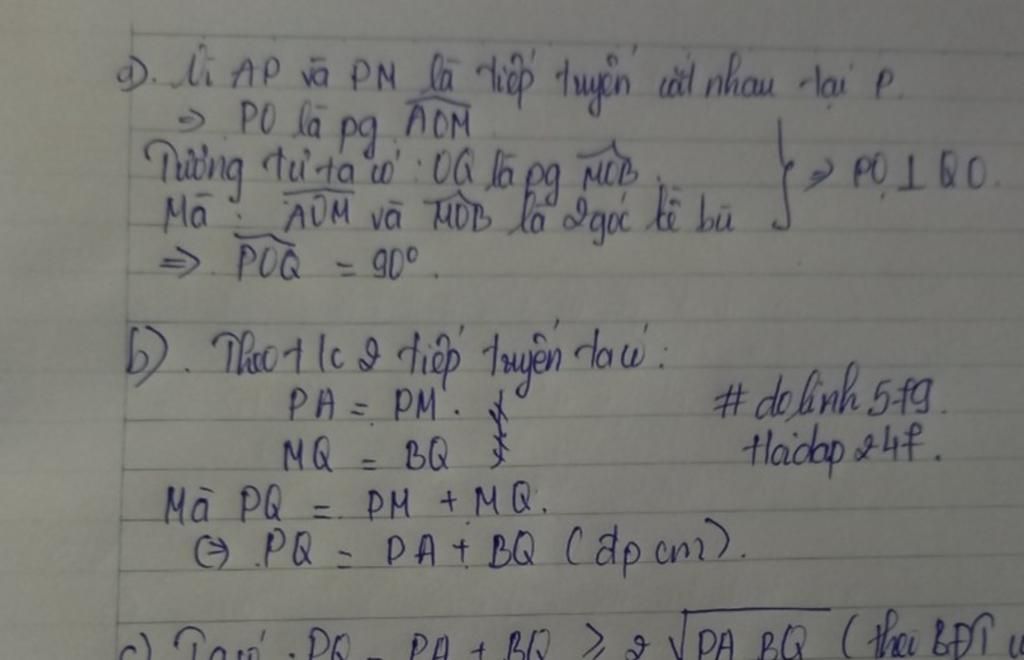 a). Vì AP và PM là tiếp tuyến cắt nhau tại P.
=> PO là pg AOM
Tương tự ta có : OQ là pg MOB.
Mà : AOM và MOB là 2 góc kề bù
} => PO ⊥ QO.
=> POQ = 90°.
b). Theo t/c 2 tiếp tuyến ta có :
PA = PM.
MQ = BQ
# dolinh579.
Hoidap247.
Mà PQ = PM + MQ.
<=> PQ = PA + BQ (đpcm).
c) Ta có : PQ = PA + BQ ≥ 2√PA.BQ (theo BĐT